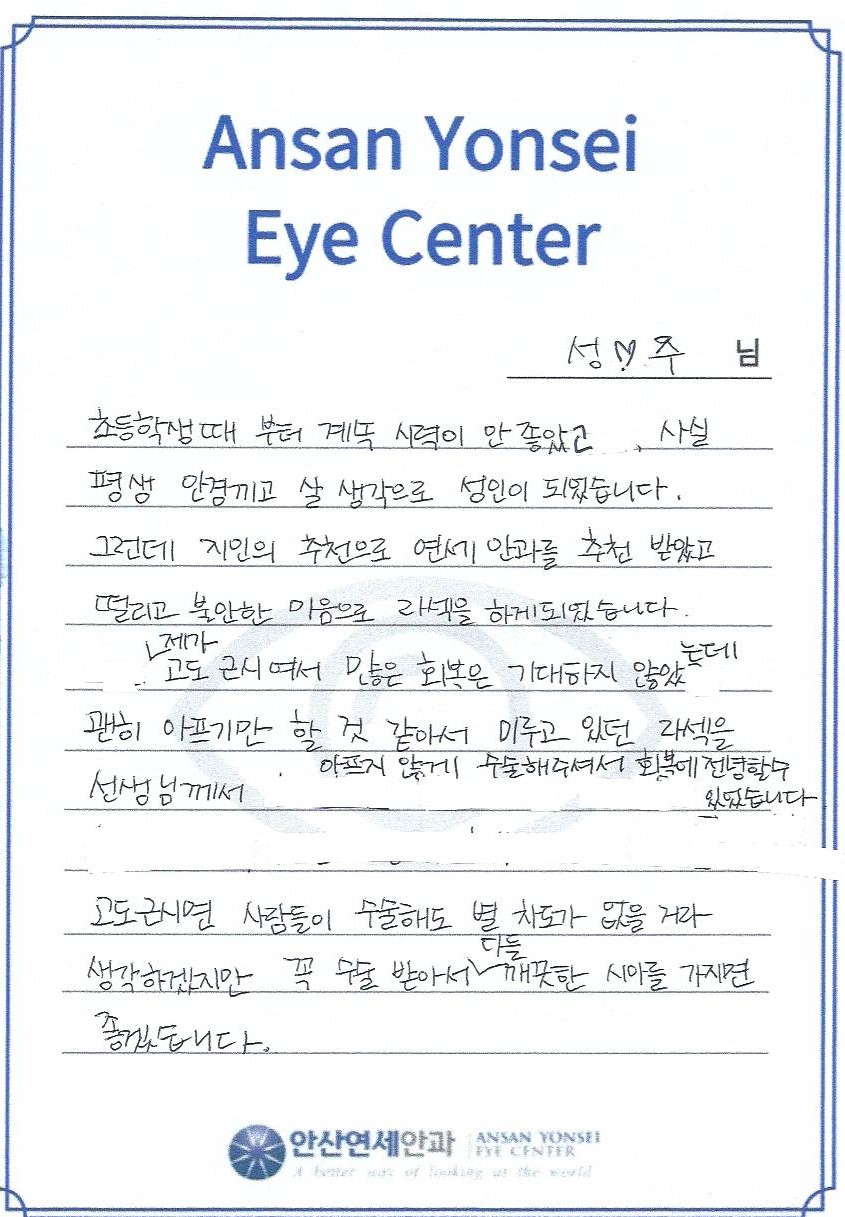 Ansan Yonsei
Eye Center
성♡주 님
초등학생때 부터 계뚝 시력이 안 좋았고, 사실
평생 안경끼고 살 생각으로 성인이 되었습니다.
그런데 지인의 추천으로 연세안과를 추천 받았고
떨리고 불안한 마음으로 라섹을 하게되었습니다.
제가
고도 근시여서 많은 회복은 기대하지 않았는데
괜히 아프기만 할 것 같아서 미루고 있던 라섹을
선생님께서 아프지 않게 수술해주셔서 회복에 전념할수
있었습니다
고도근시면 사람들이 수술해도 별 차도가 없을 거라
다들
생각하겠지만 꼭 수술 받아서 깨끗한 시야를 가지면
좋겠습니다.
안산연세안과 ANSAN YONSEI
EYE CENTER
A better way of looking at the world